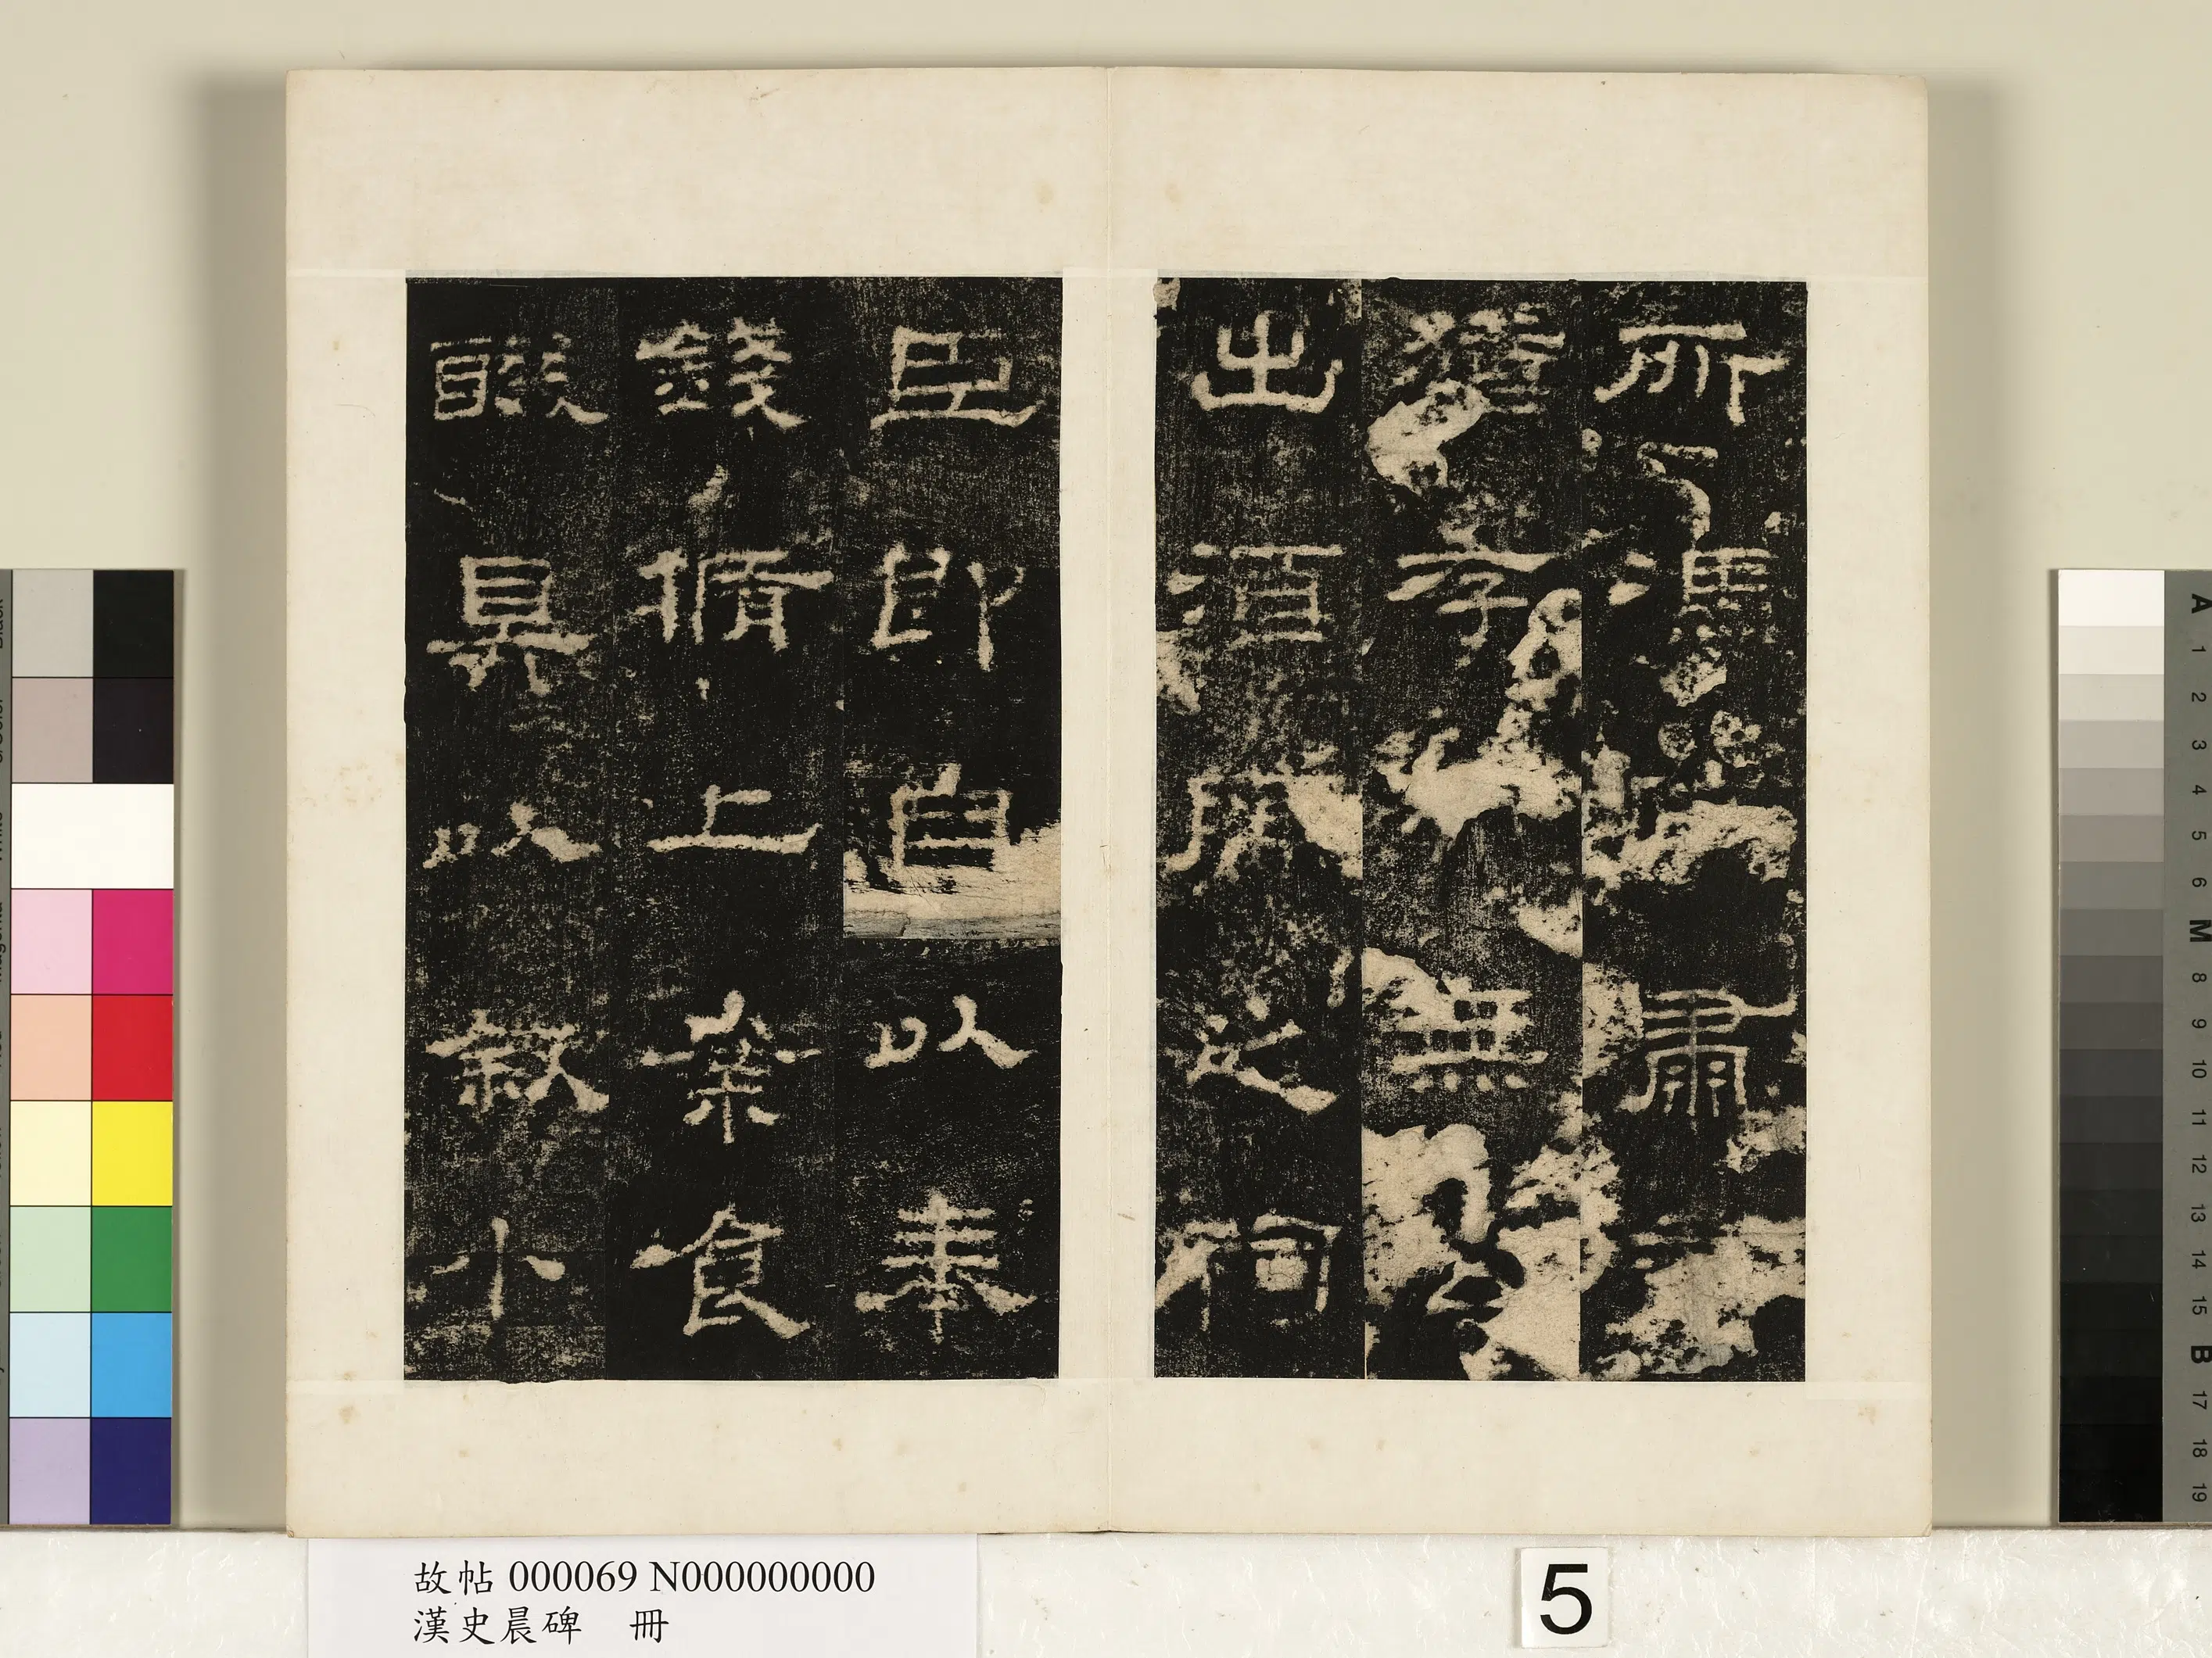 所馮依肅
猶存無公
出酒脯之祠
臣即自以奉
錢脩上案食
醊具以叙小
故帖 000069 N000000000
漢史晨碑 冊
5
A 1 2 3 4 5 6 M 8 9 10 11 12 13 14 15 B 17 18 19